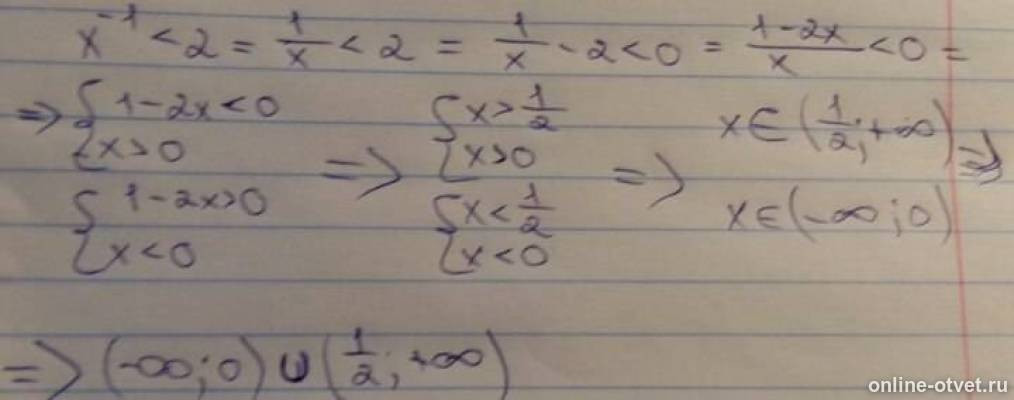 x⁻¹ < 2 = 1/x < 2 = 1/x - 2 < 0 = (1-2x)/x < 0 =
=> { 1-2x < 0 ; x > 0 => { x > 1/2 ; x > 0 => x ∈ (1/2; +∞) =>
{ 1-2x > 0 ; x < 0 { x < 1/2 ; x < 0 x ∈ (-∞; 0)
=> (-∞; 0) ∪ (1/2; +∞)
online-otvet.ru